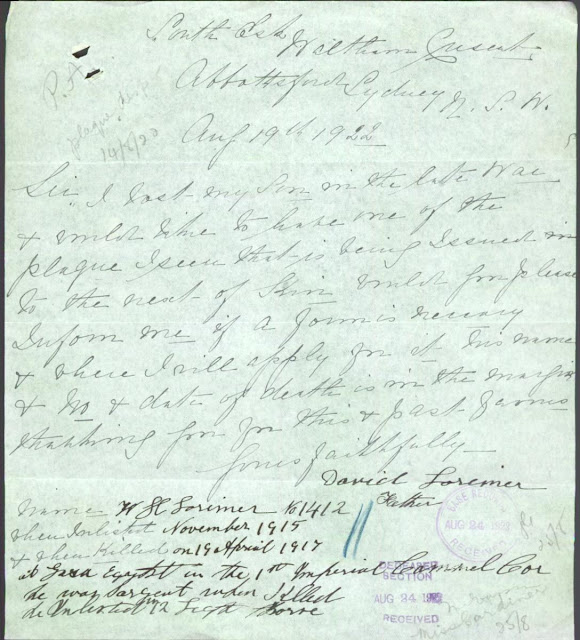 South Esk Wiltham Cresent
Abbottsford Sydney N. S. W.
Aug 19th 1922
P.A.
plaque
14/8/20
Sir I lost my Son in the late War
& would like to have one of the
plaque I seen that is being Issued
to the next of Skin would you please
Inform me if a Form is necesary
& where I will apply for it his name
& No & date of death is in the margin
thanking you for this & past favours
Yours faithfully
David Lorimer
Father
Name W H Lorimer No 1412
when Inlistet November 1915
& when Killed on 19 April 1917
at Gaza Egypt in the 1st Imperial Cammel Cor
he was Sargent when Killed
he Inlisted 12 Light Horse
BASE RECORDS
AUG 24 1922
RECEIVED
DECEASED
SECTION
AUG 24 1922
RECEIVED
Miss Gardiner
25/8
25/8